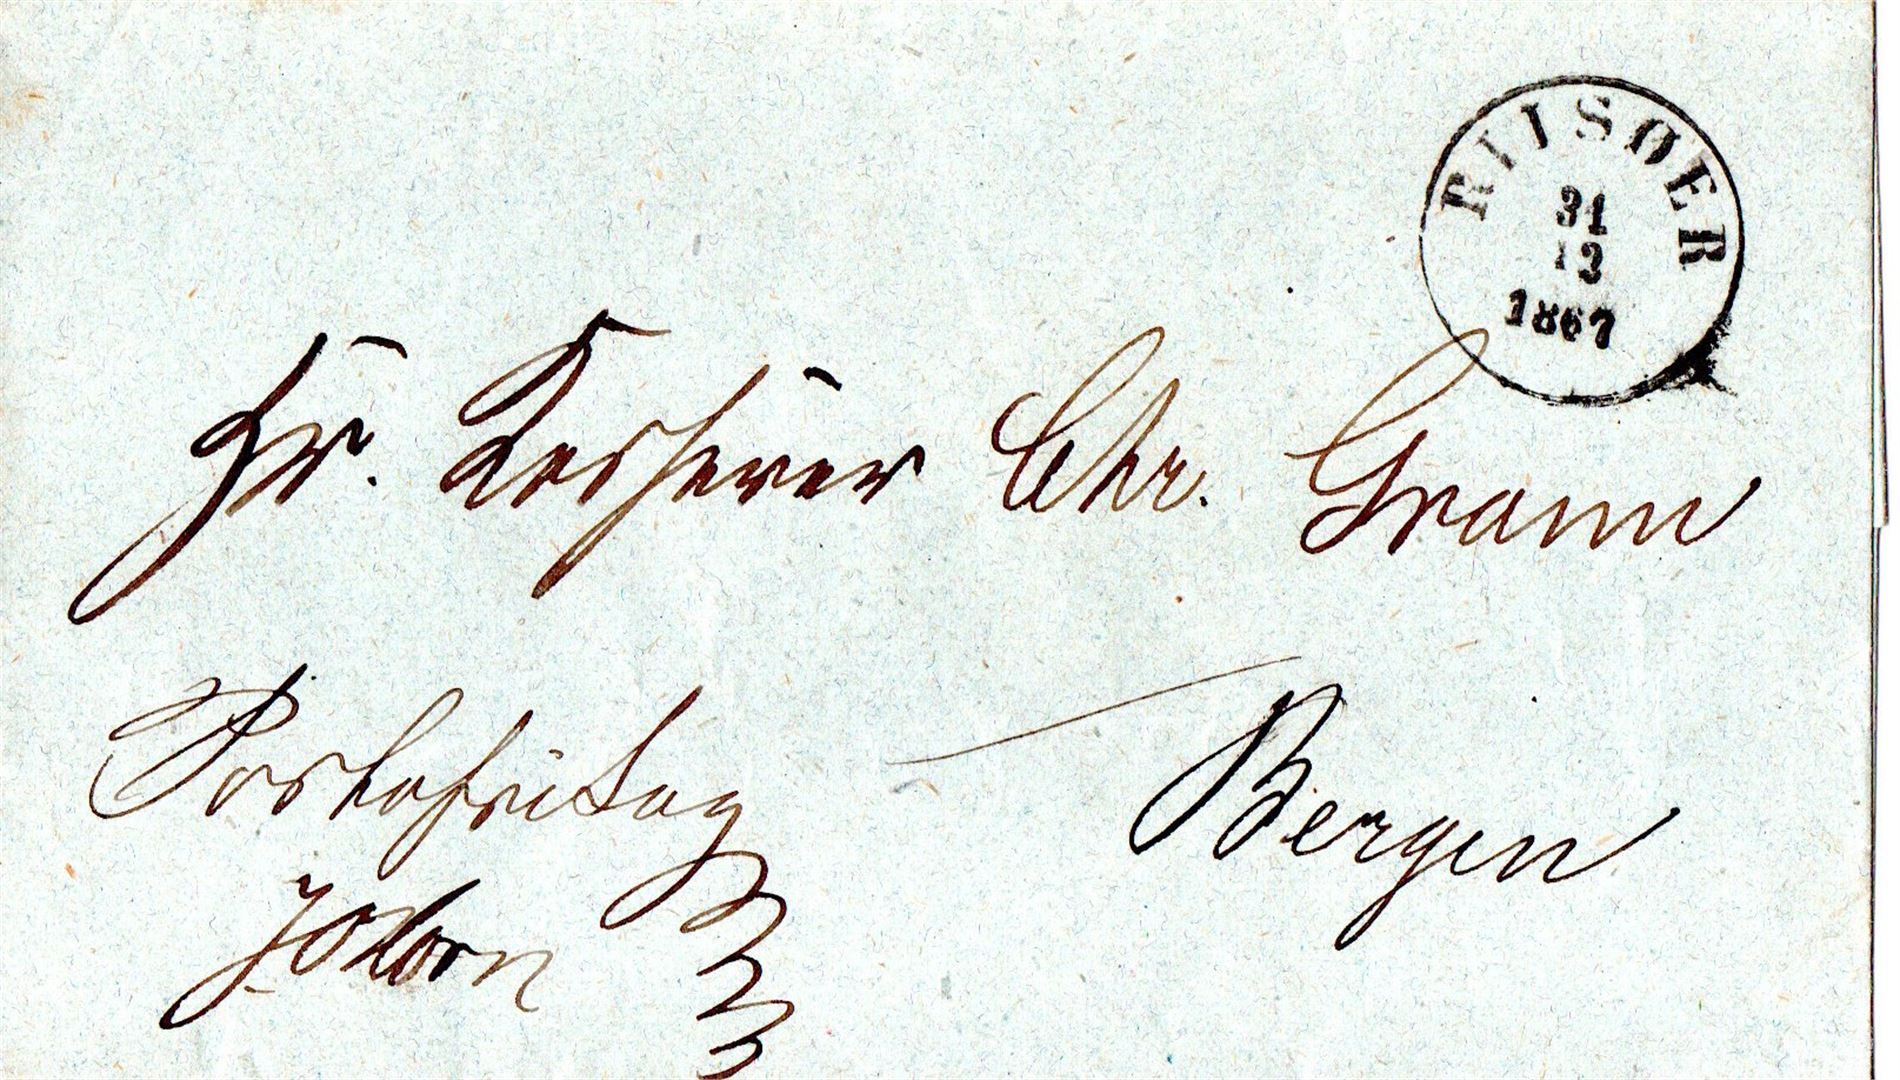 RIISØER
31
12
1867
Hr. Kasserer Chr. Grann
Bergen
Portofri Sag